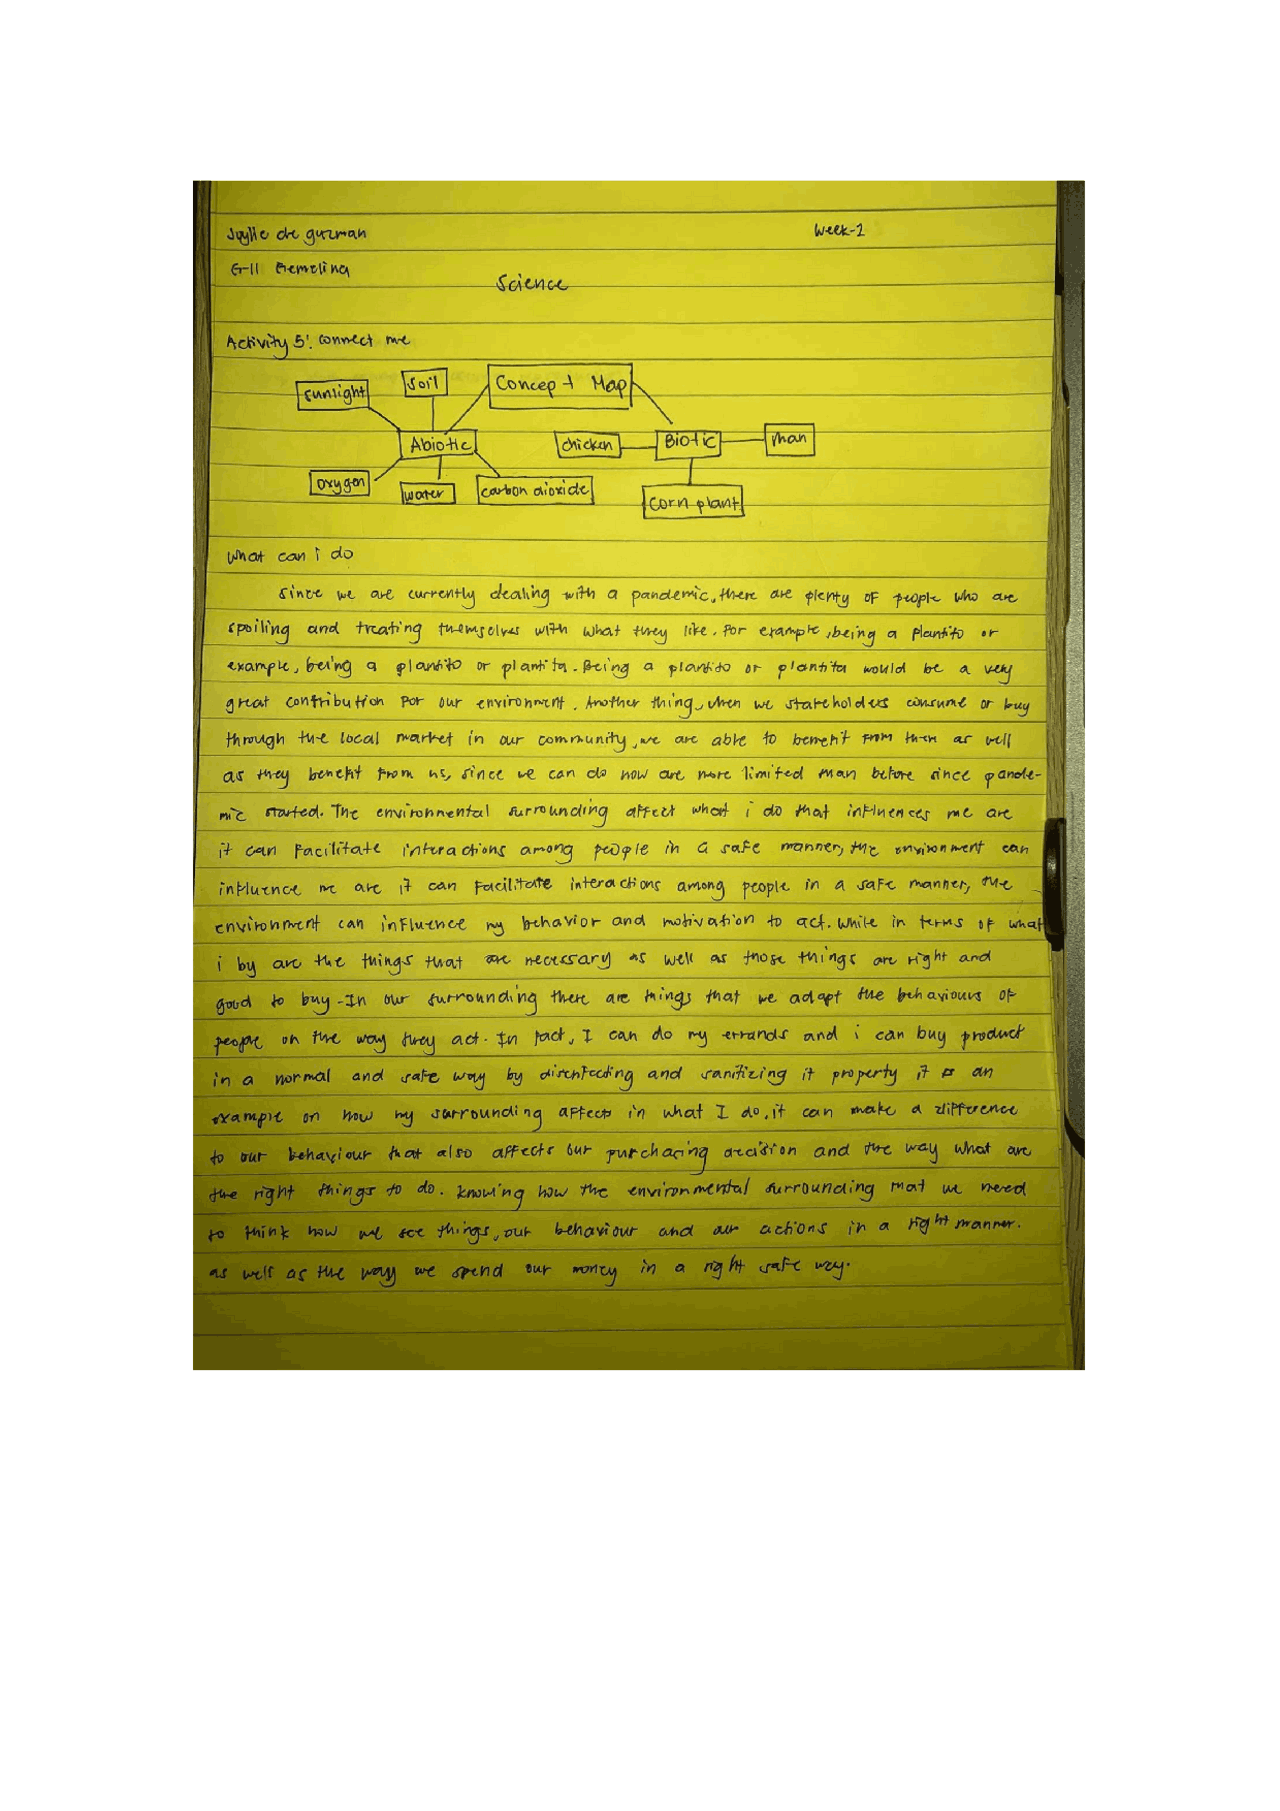 de guzman
Week-1
G-11
Science
Activity 5: connect me
sunlight
soil
Concept Map
Abiotic
chicken
Biotic
man
oxygen
water
carbon dioxide
Corn plant
What can i do
Since we are currently dealing with a pandemic, there are plenty of people who are
spoiling and treating themselves with what they like. For example, being a plantito or
example, being a plantito or plantita. Being a plantito or plantita would be a very
great contribution for our environment. Another thing, when we stakeholders consume or buy
through the local market in our community, we are able to benefit from them as well
as they benefit from us, since we can do now are more limited than before since pande-
mic started. The environmental surrounding affect what i do that influences me are
it can facilitate interactions among people in a safe manner, the environment can
influence me are it can facilitate interactions among people in a safe manner, the
environment can influence my behavior and motivation to act. While in terms of what
i by are the things that are necessary as well as those things are right and
good to buy. In our surrounding there are things that we adapt the behaviours of
people on the way they act. In fact, I can do my errands and i can buy product
in a normal and safe way by and sanitizing it property it is an
example on how my surrounding affects in what I do, it can make a difference
to our behaviour that also affects our purchasing decision and the way what are
the right things to do. knowing how the environmental surrounding that we need
to think how we see things, our behaviour and our actions in a right manner.
as well as the way we spend our money in a right safe way.